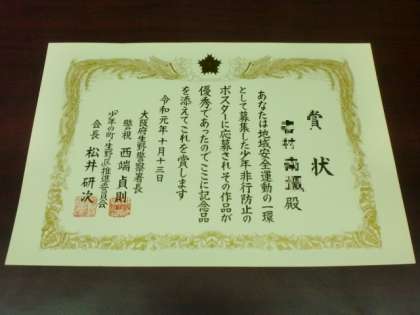 賞状
殿
あなたは地域安全運動の一環
として募集した少年非行防止の
ポスターに応募されその作品が
優秀であったのでここに記念品
を添えてこれを賞します
令和元年十月十三日
大阪府生野警察署長
警視 西端貞則
少年の町生野区推進委員会
会長 松井研次